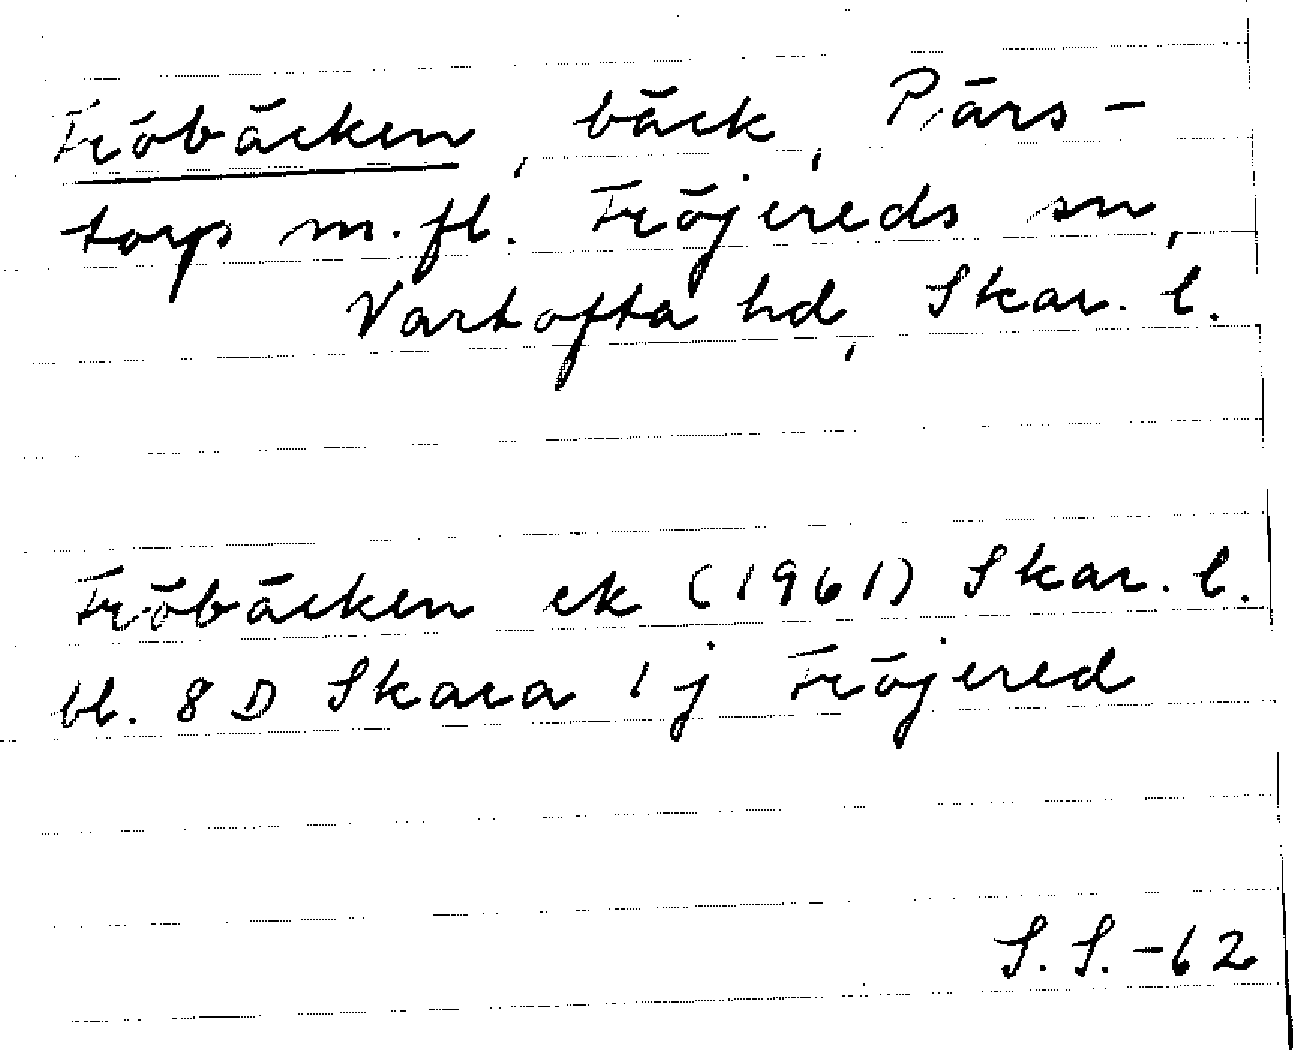 Fröbäcken, bäck, Pärs-
torp m.fl. Fröjereds sn,
Vartofta hd, Skar. l.
Fröbäcken ek (1961) Skar. l.
bl. 8 D Skara 1 j Fröjered
S. S. -62